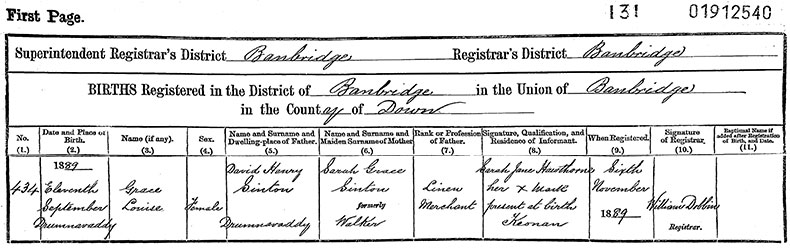 First Page.
131 01912540
Superintendent Registrar's District Banbridge Registrar's District Banbridge
BIRTHS Registered in the District of Banbridge in the Union of Banbridge
in the County of Down
No. (1.)
Date and Place of Birth. (2.)
Name (if any). (3.)
Sex. (4.)
Name and Surname and Dwelling-place of Father. (5.)
Name and Surname and Maiden Surname of Mother (6.)
Rank or Profession of Father. (7.)
Signature, Qualification, and Residence of Informant. (8.)
When Registered. (9.)
Signature of Registrar. (10.)
Baptismal Name if added after Registration of Birth, and Date. (11.)
434
1889
Eleventh
September
Drumnavaddy
Grace
Louise
Female
David Henry
Sinton
Drumnavaddy
Sarah Grace
Sinton
formerly
Walker
Linen
Merchant
Sarah Jane Hawthorne
her X mark
present at birth
Keenan
Sixth
November
1889
William Dobbin
Registrar.